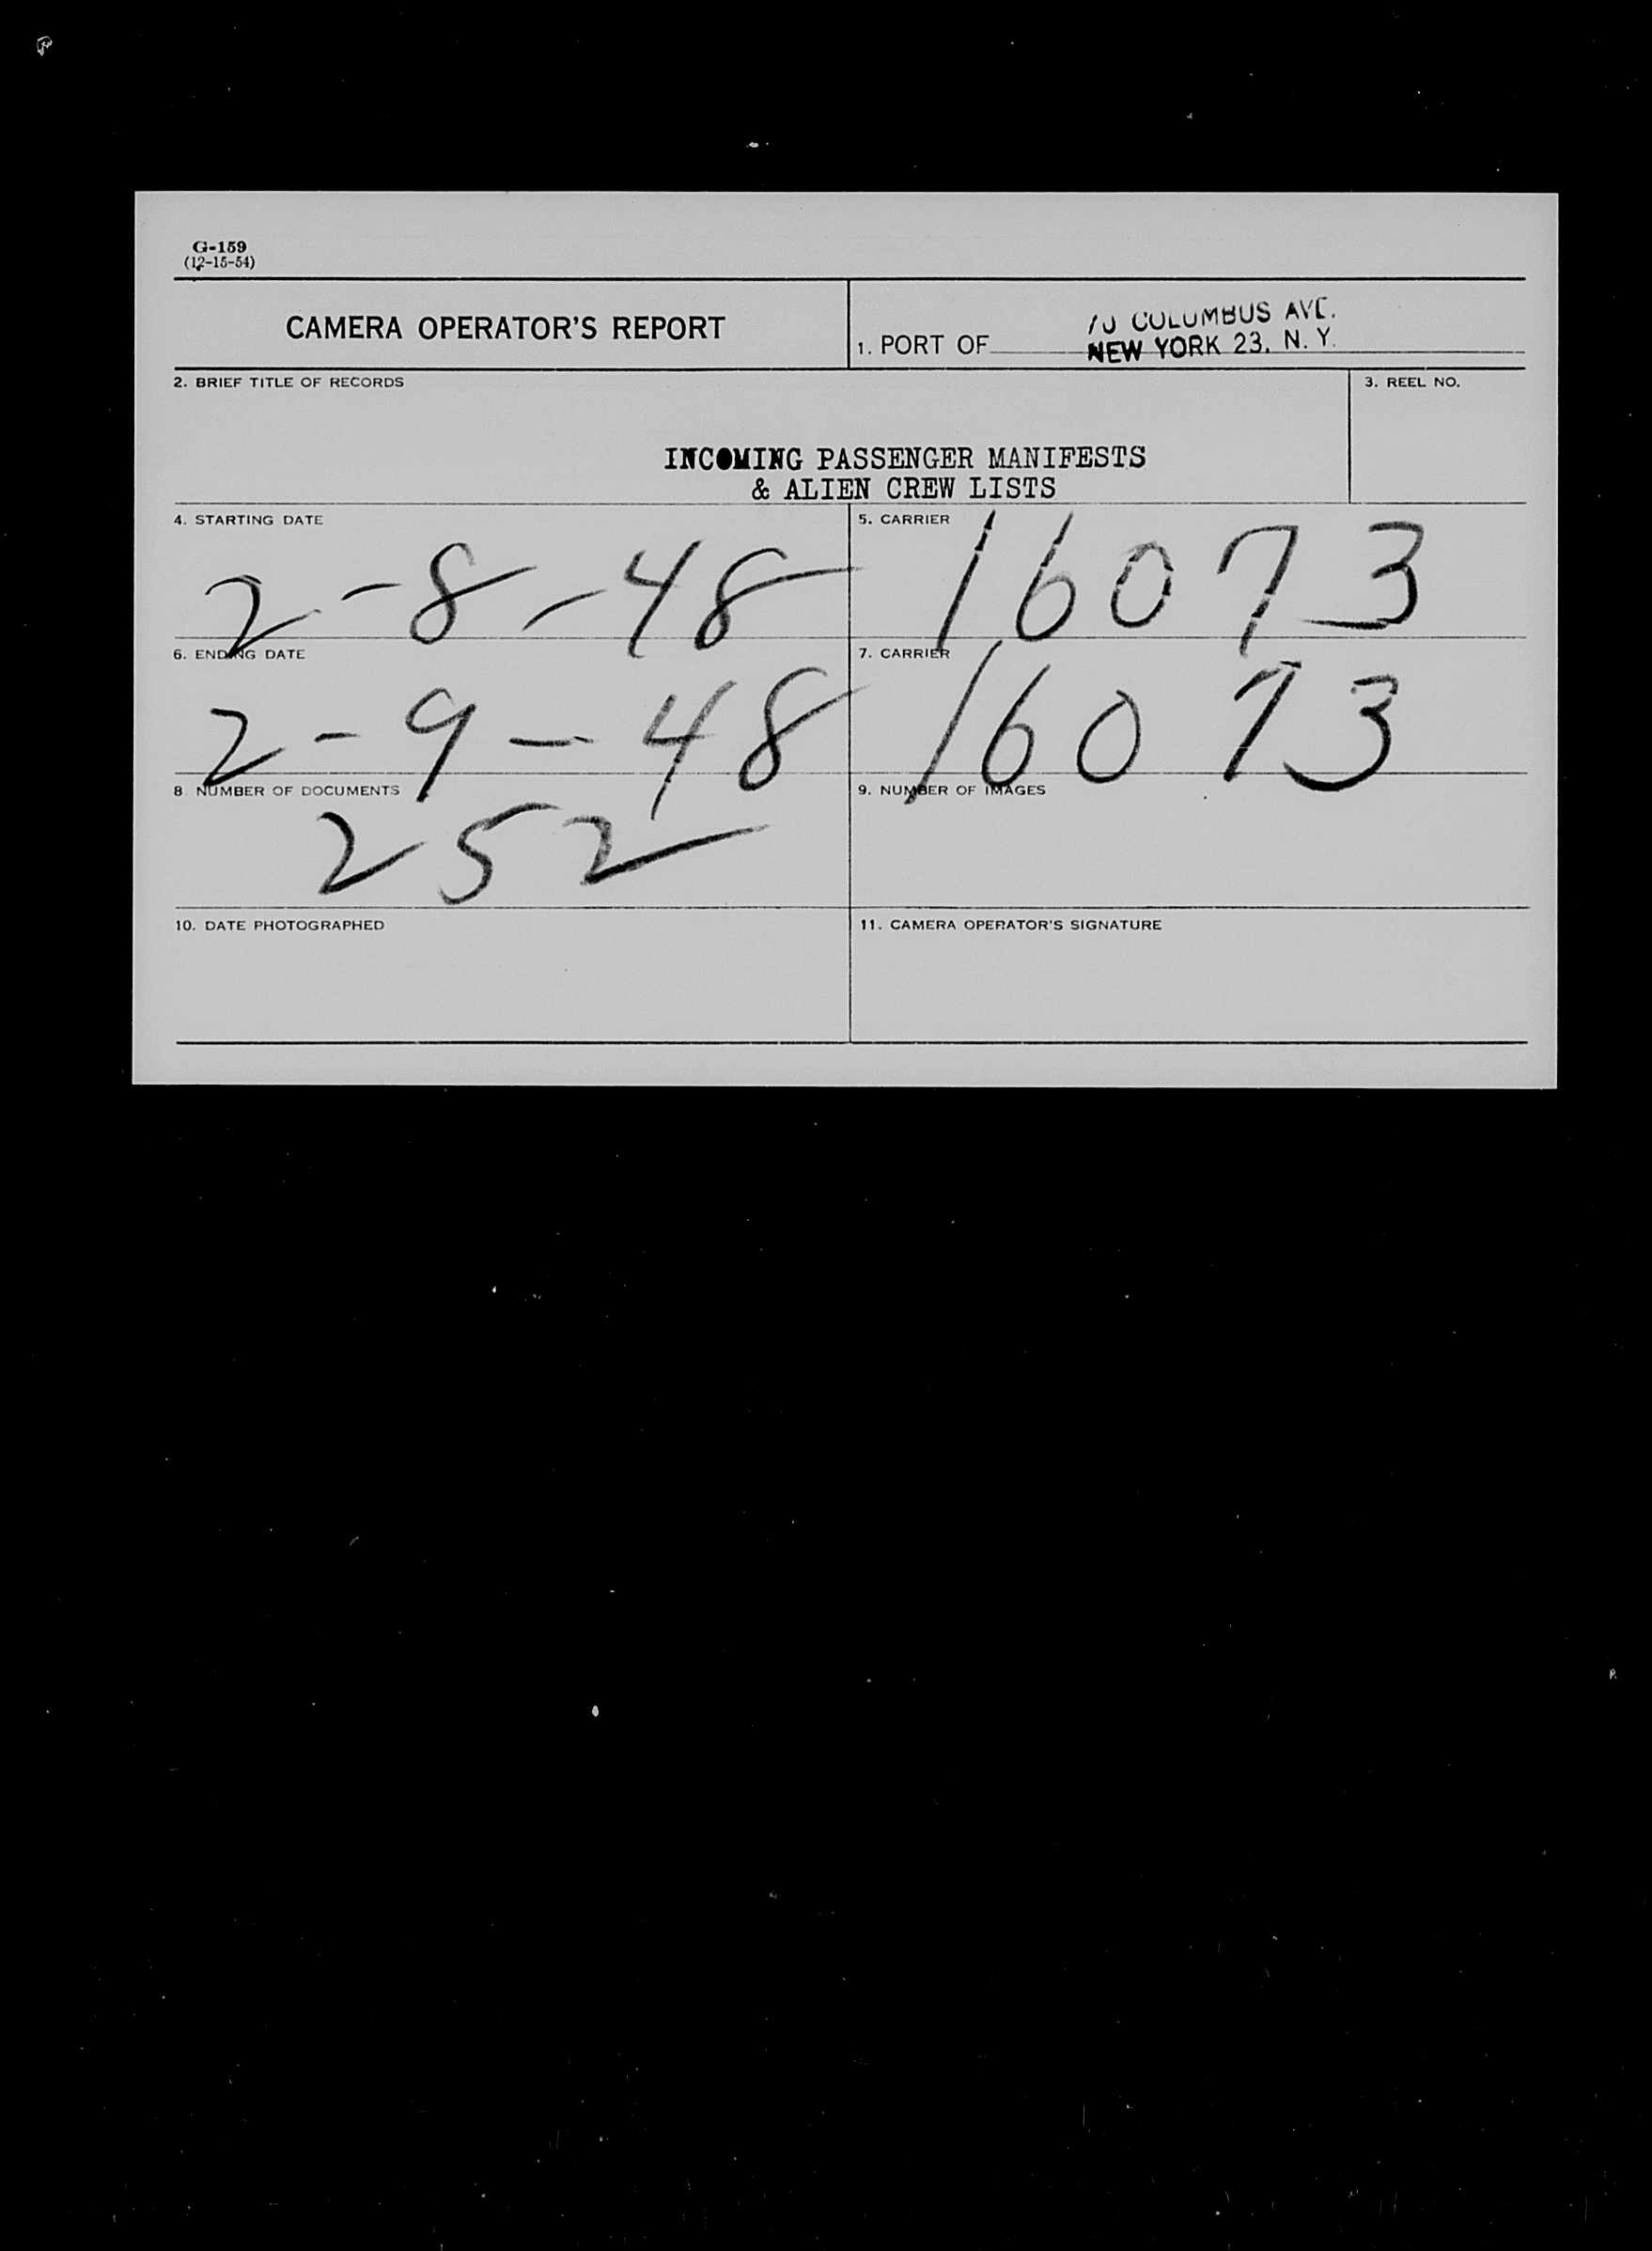 G-159
(12-15-54)
CAMERA OPERATOR'S REPORT
1. PORT OF
70 COLUMBUS AVE.
NEW YORK 23, N. Y.
2. BRIEF TITLE OF RECORDS
3. REEL NO.
INCOMING PASSENGER MANIFESTS
& ALIEN CREW LISTS
4. STARTING DATE
2-8-48
5. CARRIER
16073
6. ENDING DATE
2-9-48
7. CARRIER
16073
8. NUMBER OF DOCUMENTS
252
9. NUMBER OF IMAGES
10. DATE PHOTOGRAPHED
11. CAMERA OPERATOR'S SIGNATURE